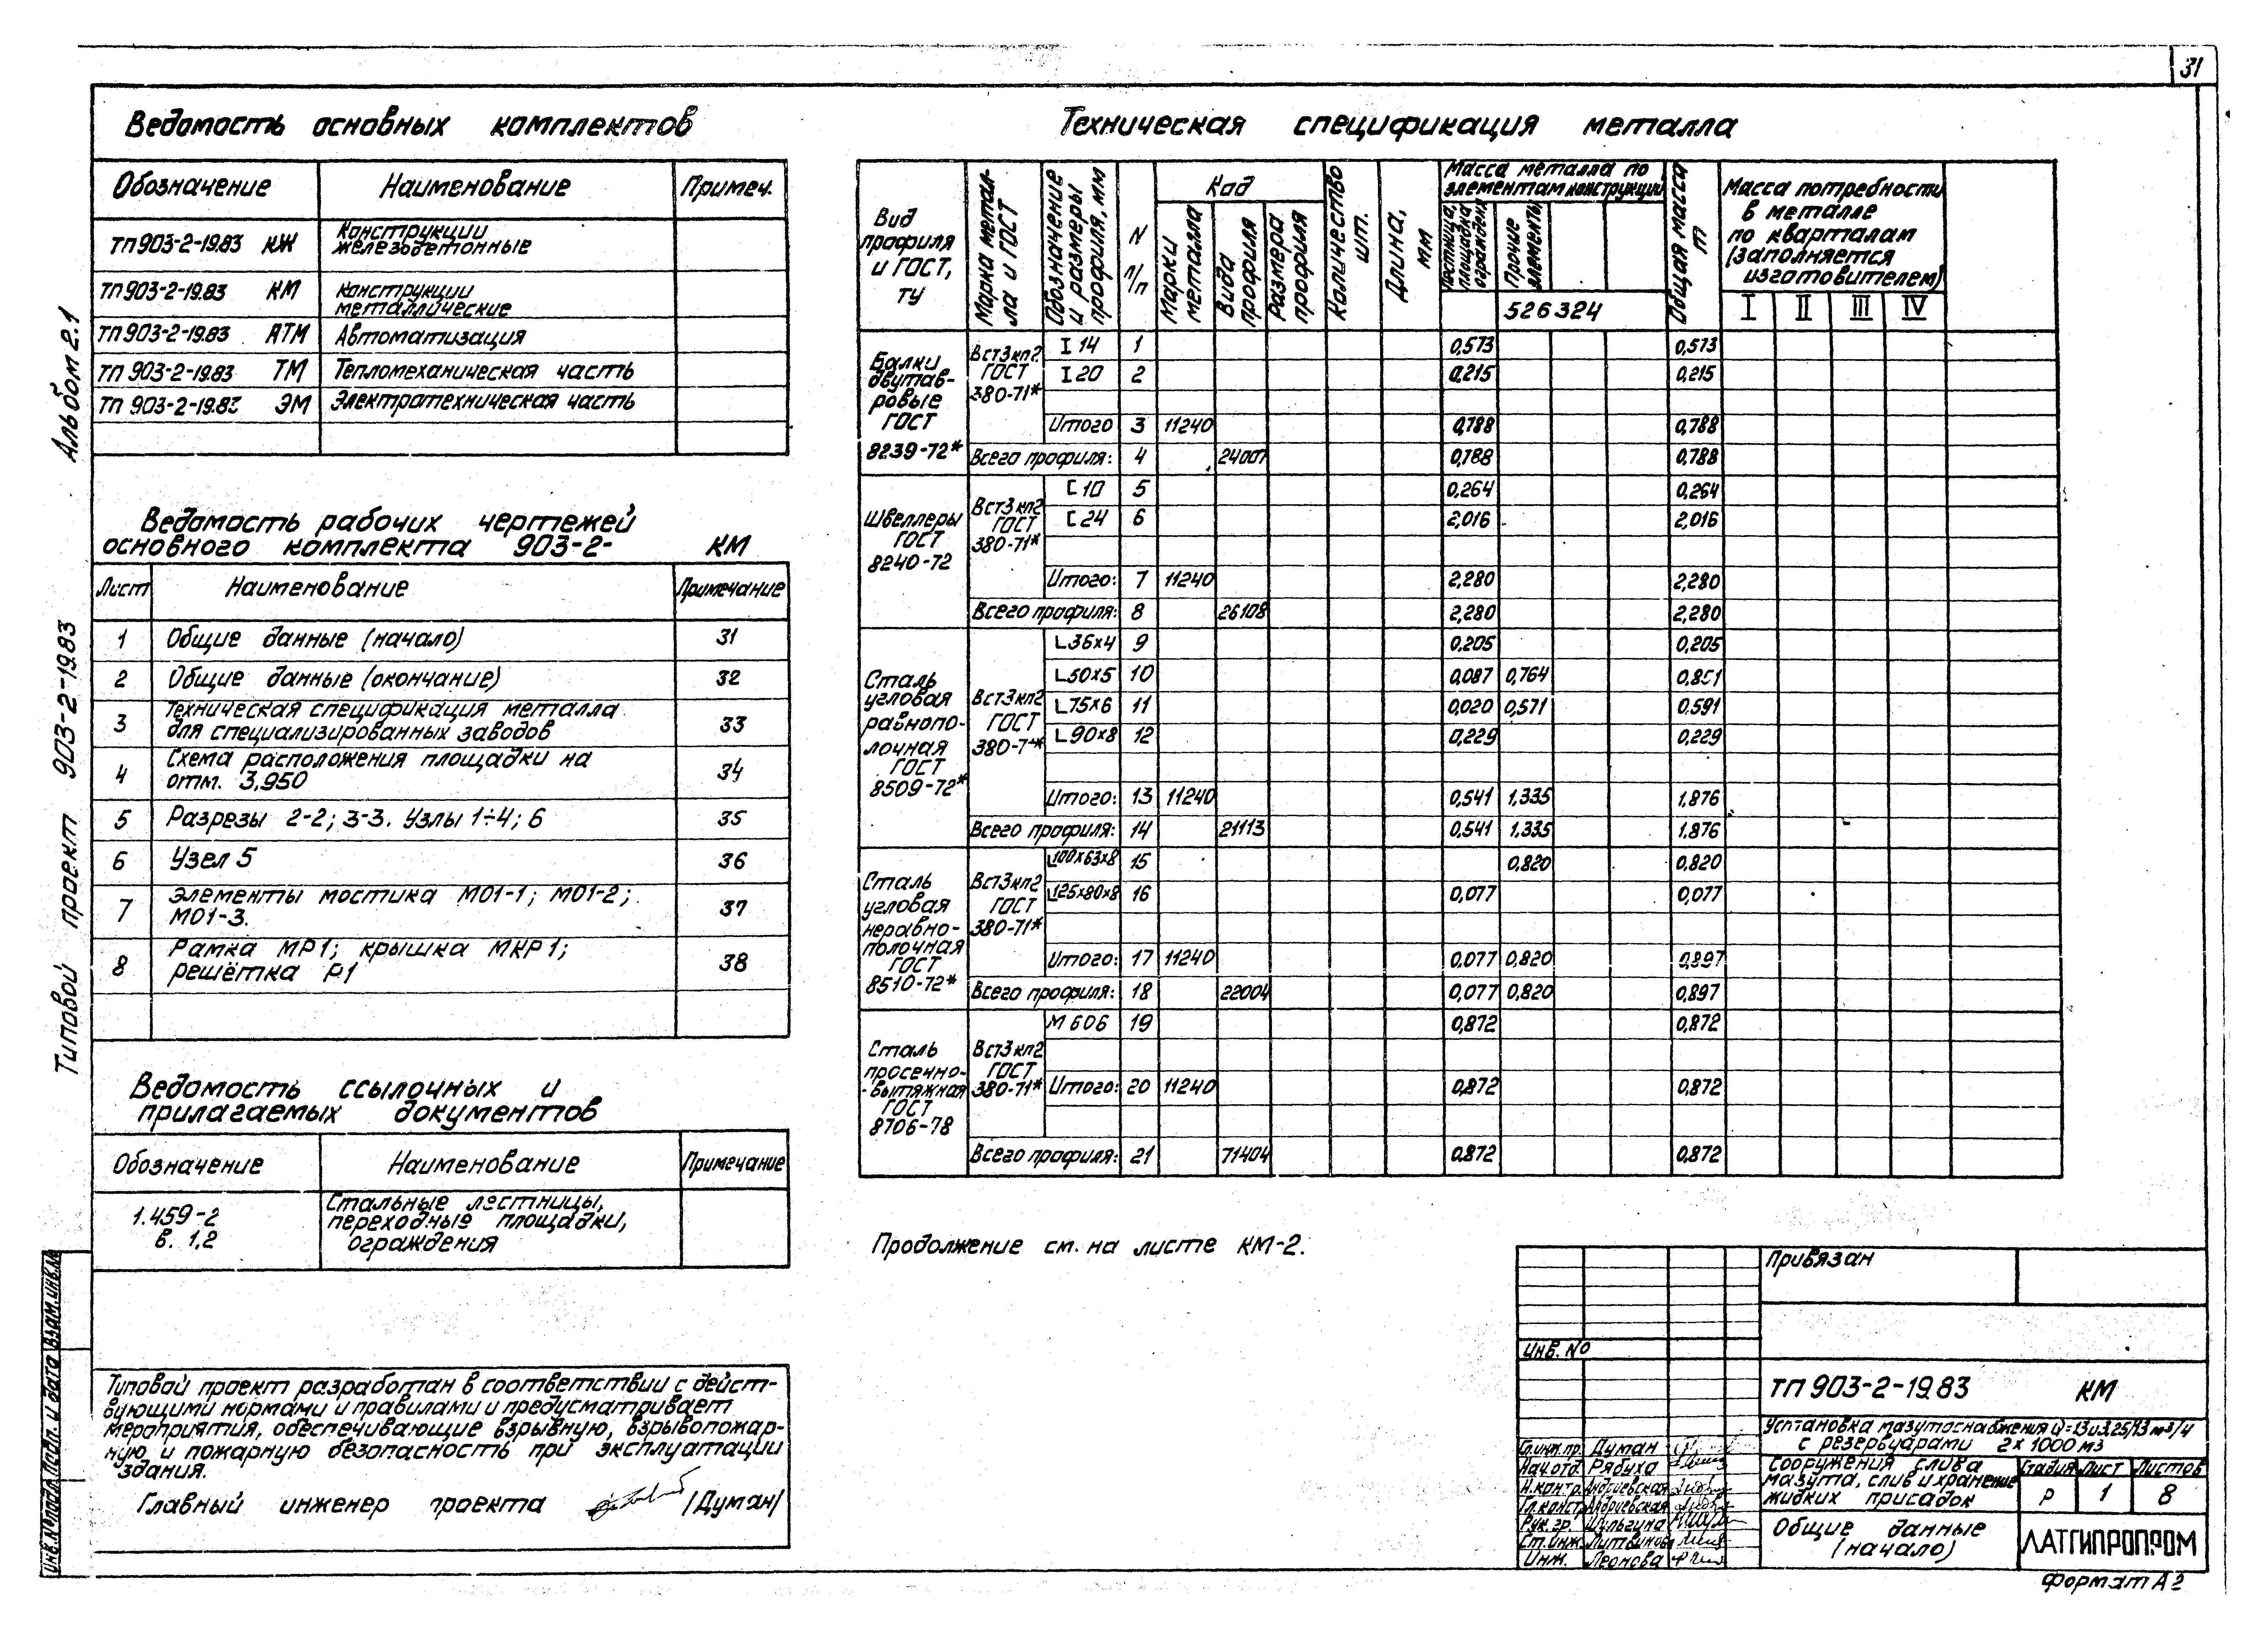 31
Ведомость основных комплектов
Обозначение Наименование Примеч.
ТП 903-2-19.83 КЖ Конструкции железобетонные
ТП 903-2-19.83 КМ Конструкции металлические
ТП 903-2-19.83 АТМ Автоматизация
ТП 903-2-19.83 ТМ Тепломеханическая часть
ТП 903-2-19.83 ЭМ Электротехническая часть
Ведомость рабочих чертежей
основного комплекта 903-2- КМ
Лист Наименование Примечание
1 Общие данные (начало) 31
2 Общие данные (окончание) 32
3 Техническая спецификация металла для специализированных заводов 33
4 Схема расположения площадки на отм. 3,950 34
5 Разрезы 2-2; 3-3. Узлы 1÷4; 6 35
6 Узел 5 36
7 Элементы мостика М01-1; М01-2; М01-3. 37
8 Рамка МР1; крышка МКР1; решётка Р1 38
Ведомость ссылочных и
прилагаемых документов
Обозначение Наименование Примечание
1.459-2 в. 1,2 Стальные лестницы, переходные площадки, ограждения
Типовой проект разработан в соответствии с дейст-
вующими нормами и правилами и предусматривает
мероприятия, обеспечивающие взрывную, взрывопожар-
ную и пожарную безопасность при эксплуатации
здания.
Главный инженер проекта /Думан/
Типовой проект 903-2-19.83 Альбом 2.1
Инв.№подл. Подп. и дата Взам.инв.№
Техническая спецификация металла
Вид профиля и ГОСТ, ТУ
Марка метал-ла и ГОСТ
Обозначение и размеры профиля, мм
N п/п
Код
Марки металла
Вида профиля
Размера профиля
Количество шт.
Длина, мм
Масса металла по элементам конструкции
Лестница, площадка ограждения
Прочие элементы
526324
Общая масса т
Масса потребности в металле по кварталам (заполняется изготовителем)
I II III IV
Балки двутав-ровые ГОСТ 8239-72*
ВСт3кп2 ГОСТ 380-71*
I 14 1 0,573 0,573
I 20 2 0,215 0,215
Итого 3 11240 0,788 0,788
Всего профиля: 4 24007 0,788 0,788
Швеллеры ГОСТ 8240-72
ВСт3кп2 ГОСТ 380-71*
[ 10 5 0,264 0,264
[ 24 6 2,016 2,016
Итого: 7 11240 2,280 2,280
Всего профиля: 8 26108 2,280 2,280
Сталь угловая равнопо-лочная ГОСТ 8509-72*
ВСт3кп2 ГОСТ
L36x4 9 0.205 0,205
L50x5 10 0,087 0,764 0,851
L75x6 11 0,020 0,571 0.591
L90x8 12 0,229 0,229
Итого: 13 11240 0,541 1,335 1,876
Всего профиля: 14 21113 0,541 1,335 1,876
Сталь угловая неравно-полочная ГОСТ 8510-72*
ВСт3кп2 ГОСТ 380-71*
L100x63x8 15 0,820 0,820
L125x80x8 16 0,077 0,077
Итого: 17 11240 0,077 0,820 0,897
Всего профиля: 18 22004 0,077 0,820 0,897
Сталь просечно--вытяжная ГОСТ 8706-78
ВСт3кп2 ГОСТ 380-71*
М 606 19 0,872 0,872
Итого: 20 11240 0,872 0,872
Всего профиля: 21 71404 0,872 0,872
Продолжение см. на листе КМ-2.
Привязан
Инв. №
ТП 903-2-19.83 КМ
Установка мазутоснабжения Q=13 и 3.25/13 м³/ч
с резервуарами 2х1000 м3
Сооружения слива
мазута, слив и хранение
жидких присадок
Стадия Лист Листов
Р 1 8
Общие данные
(начало)
ЛАТГИПРОПРОМ
Гл.инж.пр. Думан
Нач.отд. Рябуха
Н.контр. Андриевская
Гл.конст. Андриевская
Рук. гр. Шульгина
Ст.инж. Литвинова
Инж. Леонова
Формат А2